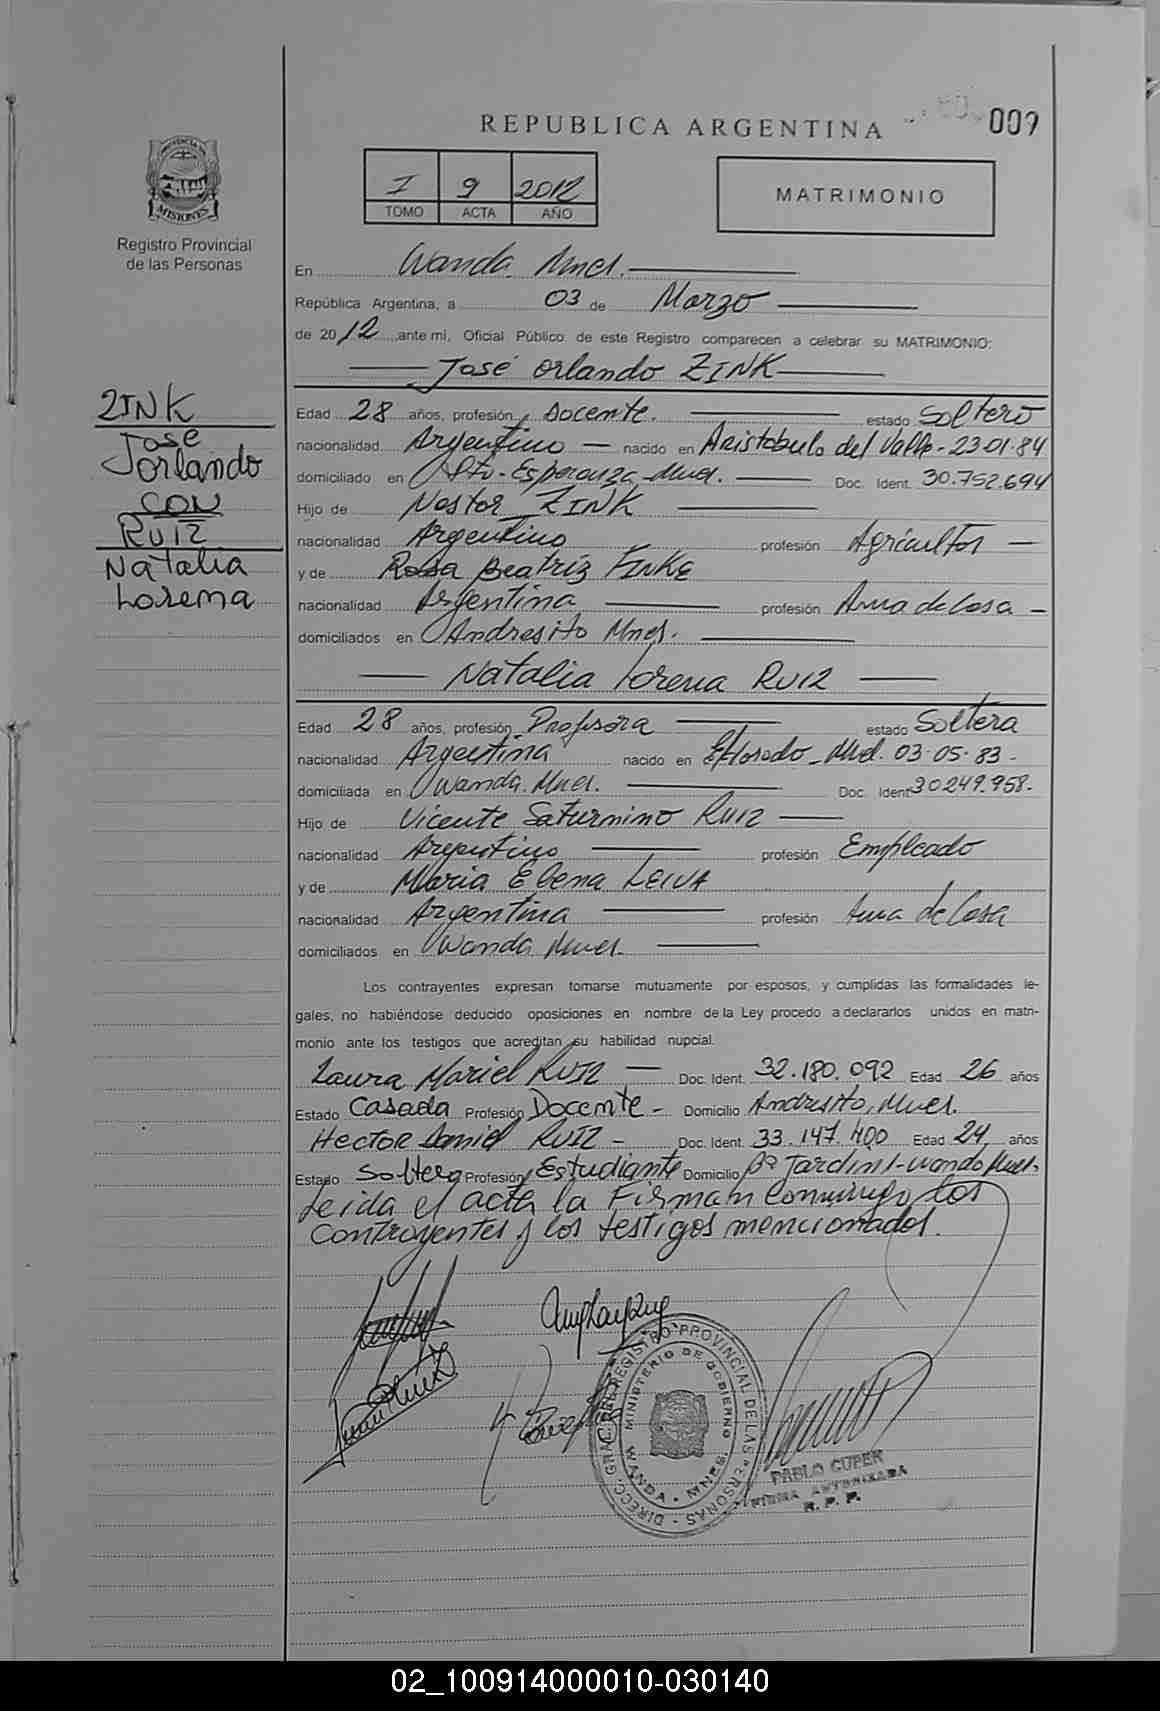 REPUBLICA ARGENTINA
009
PROVINCIA DE
MISIONES
Registro Provincial
de las Personas
I 9 2012
TOMO ACTA AÑO
MATRIMONIO
En Wanda Mnes.
República Argentina, a 03 de Marzo
de 2012 ante mi, Oficial Público de este Registro comparecen a celebrar su MATRIMONIO:
José Orlando ZINK
ZINK
José
Orlando
CON
RUIZ
Natalia
Lorena
Edad 28 años, profesión Docente. estado Soltero
nacionalidad Argentino nacido en Aristobulo del Valle - 23-01-84
domiciliado en Pto. Esperanza Mnes. Doc. Ident. 30.752.694
Hijo de Nestor ZINK
nacionalidad Argentino profesión Agricultor
y de Rosa Beatriz FINKE
nacionalidad Argentina profesión Ama de Casa
domiciliados en Andresito Mnes.
Natalia Lorena RUIZ
Edad 28 años, profesión Profesora estado Soltera
nacionalidad Argentina nacido en Eldorado - Mnes. 03-05-83-
domiciliada en Wanda. Mnes. Doc. Ident 30249.958.
Hijo de Vicente Saturnino RUIZ
nacionalidad Argentino profesión Empleado
y de Maria Elena LEIVA
nacionalidad Argentina profesión Ama de Casa
domiciliados en Wanda Mnes.
Los contrayentes expresan tomarse mutuamente por esposos, y cumplidas las formalidades le-
gales, no habiéndose deducido oposiciones en nombre de la Ley procedo a declararlos unidos en matri-
monio ante los testigos que acreditan su habilidad nupcial.
Laura Mariel RUIZ Doc. Ident. 32.180.092 Edad 26 años
Estado Casada Profesión Docente - Domicilio Andresito, Mnes.
Hector Daniel RUIZ - Doc. Ident. 33.147.400 Edad 24 años
Estado Soltero Profesión Estudiante Domicilio Bº Jardin 1 - Wanda Mnes.
Leida el acta la Firman conmigo los
Contrayentes y los testigos mencionados.
DIRECC. GRAL. DEL REGISTRO PROVINCIAL DE LAS PERSONAS
MINISTERIO DE GOBIERNO
WANDA - MNES.
PABLO CUPER
FIRMA AUTORIZADA
R. P. P.
02_100914000010-030140